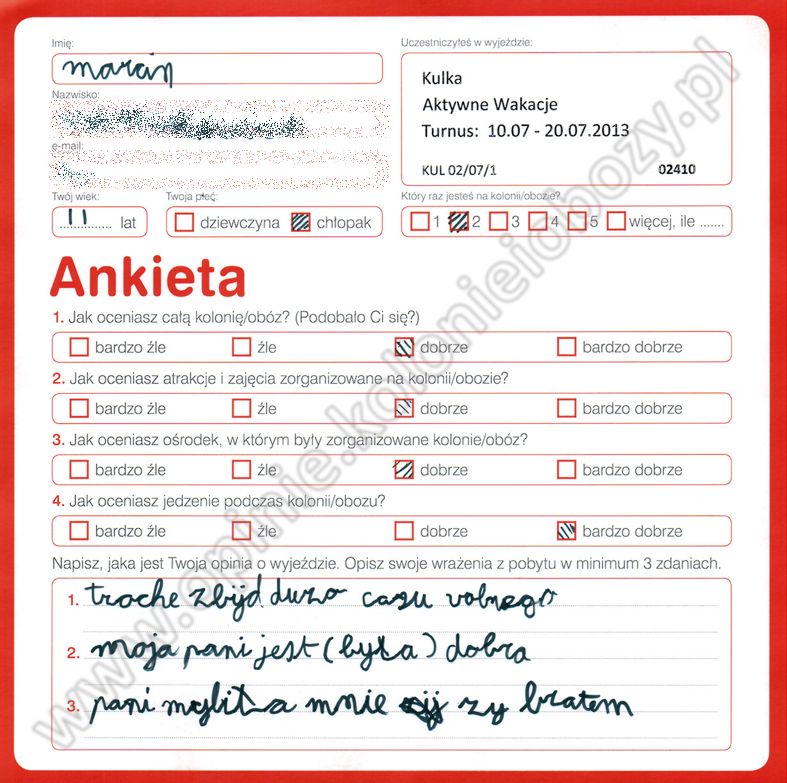 Imię:
marcin
Uczestniczyłeś w wyjeździe:
Kulka
Aktywne Wakacje
Turnus: 10.07 - 20.07.2013
KUL 02/07/1 02410
Nazwisko:
e-mail:
Twój wiek:
11 lat
Twoja płeć:
dziewczyna chłopak
Który raz jesteś na kolonii/obozie?
1 2 3 4 5 więcej, ile .......
Ankieta
1. Jak oceniasz całą kolonię/obóz? (Podobało Ci się?)
bardzo źle źle dobrze bardzo dobrze
2. Jak oceniasz atrakcje i zajęcia zorganizowane na kolonii/obozie?
bardzo źle źle dobrze bardzo dobrze
3. Jak oceniasz ośrodek, w którym były zorganizowane kolonie/obóz?
bardzo źle źle dobrze bardzo dobrze
4. Jak oceniasz jedzenie podczas kolonii/obozu?
bardzo źle źle dobrze bardzo dobrze
Napisz, jaka jest Twoja opinia o wyjeździe. Opisz swoje wrażenia z pobytu w minimum 3 zdaniach.
1. troche zbijd duzo casu volnego
2. moja pani jest (była) dobra
3. pani myliła mnie zy bratem
www.opinie.kolonieiobozy.pl